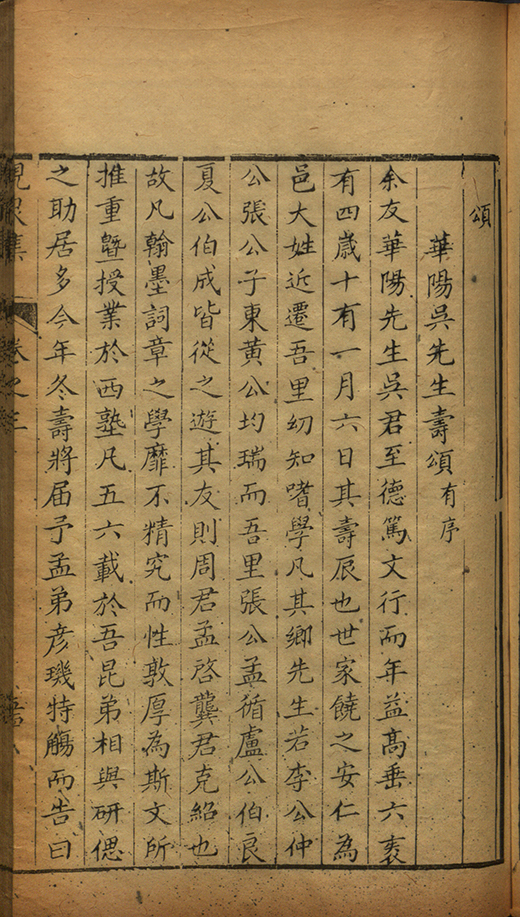 頌
華陽吳先生壽頌有序
余友華陽先生吳君至德篤文行而年益髙垂六袠
有四歳十有一月六日其壽辰也世家饒之安仁為
邑大姓近遷吾里幼知嗜學凡其鄉先生若李公仲
公張公子東黃公均瑞而吾里張公孟循盧公伯良
夏公伯成皆從之遊其友則周君孟啓龔君克紹也
故凡翰墨詞章之學靡不精究而性敦厚為斯文所
推重曁授業於西塾凡五六載於吾昆弟相與研偲
之助居多今年冬壽將届予孟弟彦璣特觴而告曰
峴泉集 卷之